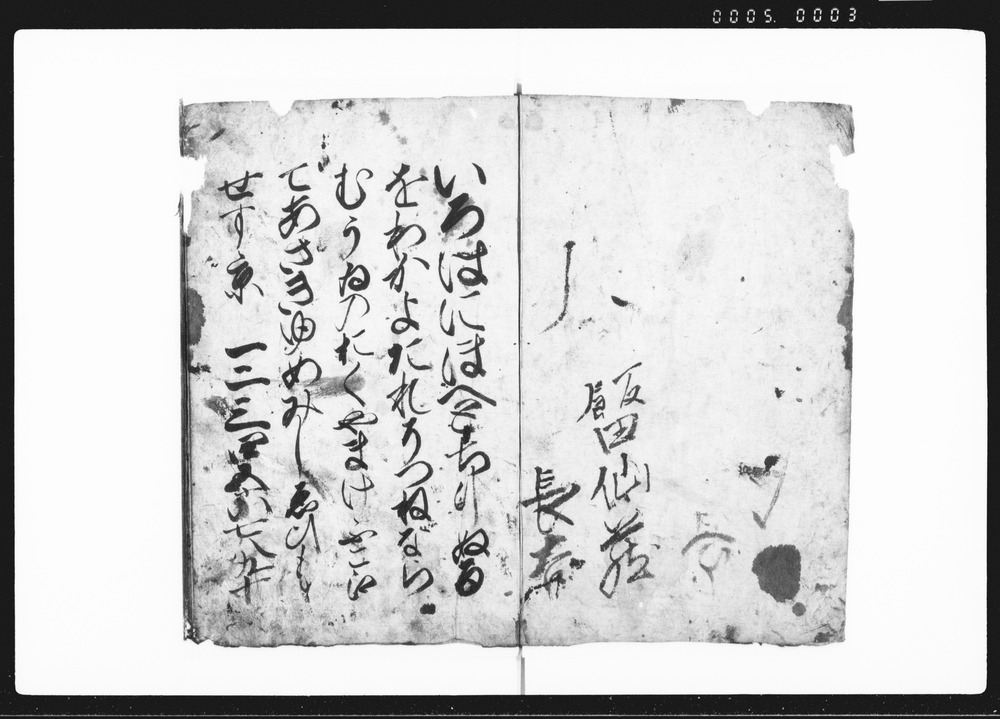 0005. 0003
飯田仙蔵
長
いろはにほへとちりぬるを
わかよたれそつねなら
むうゐのおくやまけふこえ
てあさきゆめみしゑひも
せす京 一二三四五六七八九十